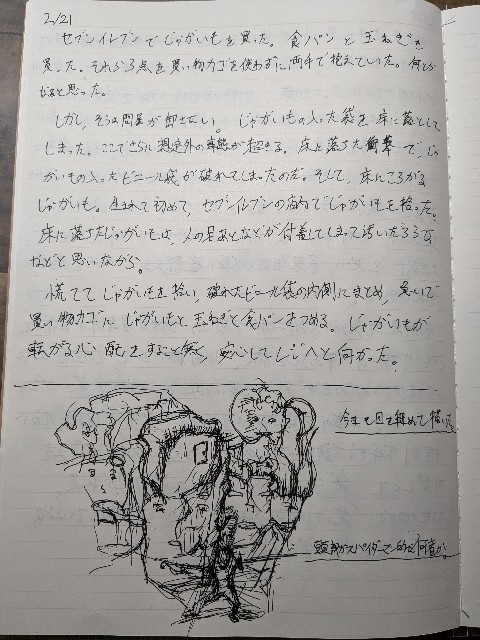 2/21
セブンイレブンでじゃがいもを買った。食パンと玉ねぎを
買った。それら3点を買い物カゴを使わずに両手で抱えていた。何とか
なると思った。
しかし、そうは問屋が卸さない。じゃがいもの入った袋を床に落として
しまった。ここでさらに想定外の事態が起きる。床に落ちた衝撃で、じゃ
がいもの入ったビニール袋が破れてしまったのだ。そして、床にころがる
じゃがいも。生まれて初めて、セブンイレブンの店内でじゃがいもを拾った。
床に落ちたじゃがいもは、人の足あとなどが付着してしまって汚いだろうな
などと思いながら。
慌ててじゃがいもを拾い、破れたビニール袋の内側にまとめ、急いで
買い物カゴにじゃがいもと玉ねぎと食パンをつめる。じゃがいもが
転がる心配をすること無く、安心してレジへと向かった。
今年も目を細めて描いた
頭部がスパイダーマン的な何者か。